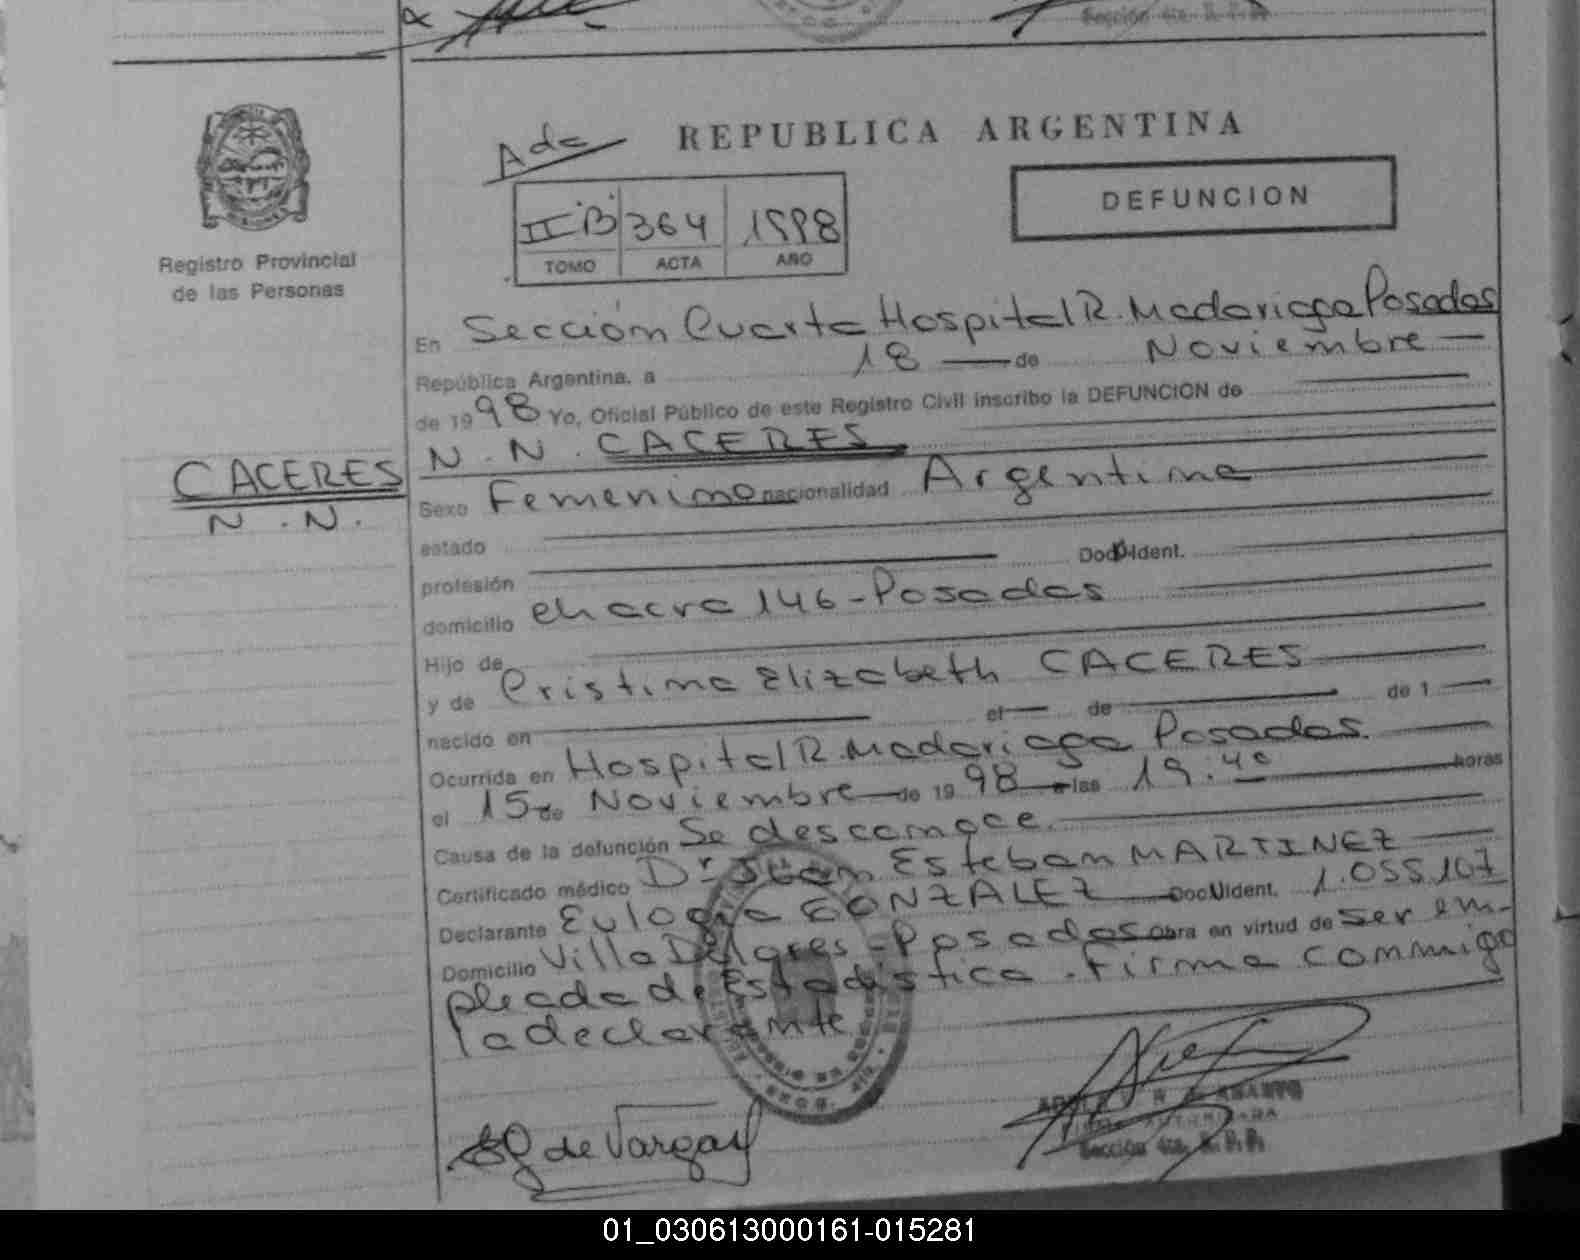 Sección 4ta. R.P.P.
REPUBLICA ARGENTINA
Ada
DEFUNCION
II "B" 364 1998
TOMO ACTA AÑO
Registro Provincial
de las Personas
En Sección Cuarta Hospital R. Madariaga Posadas
República Argentina, a 18 de Noviembre
de 1998 Yo, Oficial Público de este Registro Civil inscribo la DEFUNCION de
N. N. CACERES
CACERES
N. N.
Sexo Femenino nacionalidad Argentina
estado
profesión Doc. Ident.
domicilio chacra 146 - Posadas
Hijo de
y de Cristina Elizabeth CACERES
nacido en el de de 1
Ocurrida en Hospital R. Madariaga Posadas.
el 15 de Noviembre de 1998 a las 19:40 horas
Causa de la defunción Se desconoce.
Certificado médico Dr Juan Esteban MARTINEZ
Declarante Eulogia GONZALEZ Doc. Ident. 1.055.107
Domicilio Villa Dolores - Posadas Obra en virtud de ser em-
pleada de Estadística. Firma conmigo
la declarante
de Vargas
Sección 4ta. R.P.P.
01_030613000161-015281